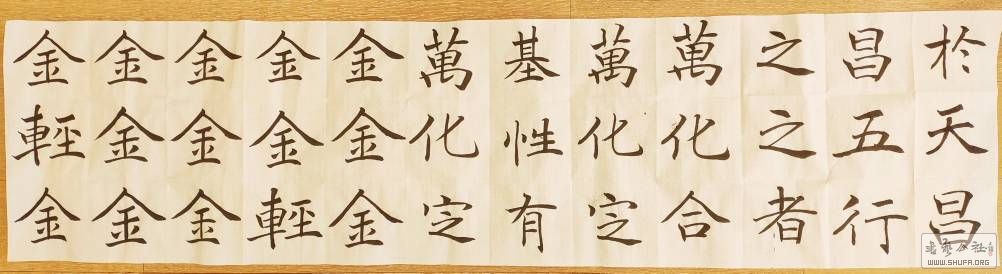 於天昌
昌五行
之之者
萬化合
萬化定
基性有
萬化定
金金金
金金輕
金金金
金金金
金輕金
WWW.SHUFA.ORG